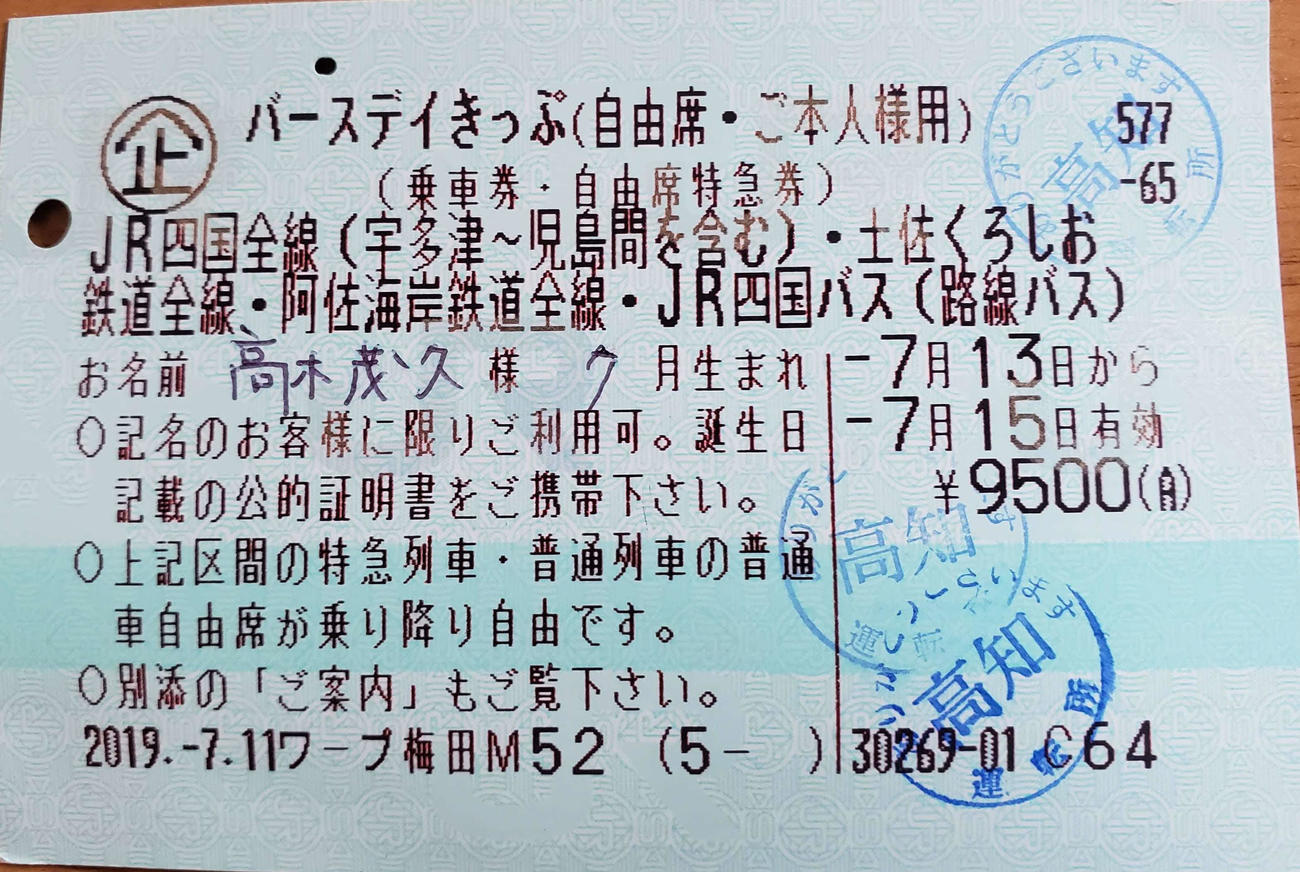 企 バースデイきっぷ(自由席・ご本人様用) 577
(乗車券・自由席特急券) -65
JR四国全線(宇多津~児島間を含む)・土佐くろしお
鉄道全線・阿佐海岸鉄道全線・JR四国バス(路線バス)
お名前 高木茂久 様 7 月生まれ
-7月13日から
○記名のお客様に限りご利用可。誕生日
-7月15日有効
記載の公的証明書をご携帯下さい。
¥9500(自)
○上記区間の特急列車・普通列車の普通
車自由席が乗り降り自由です。
○別添の「ご案内」もご覧下さい。
2019.-7.11ワープ梅田M52 (5- ) 30269-01 C64
ありがとうございます
高知
運転所
高知
運転
ございます
高知
運転所